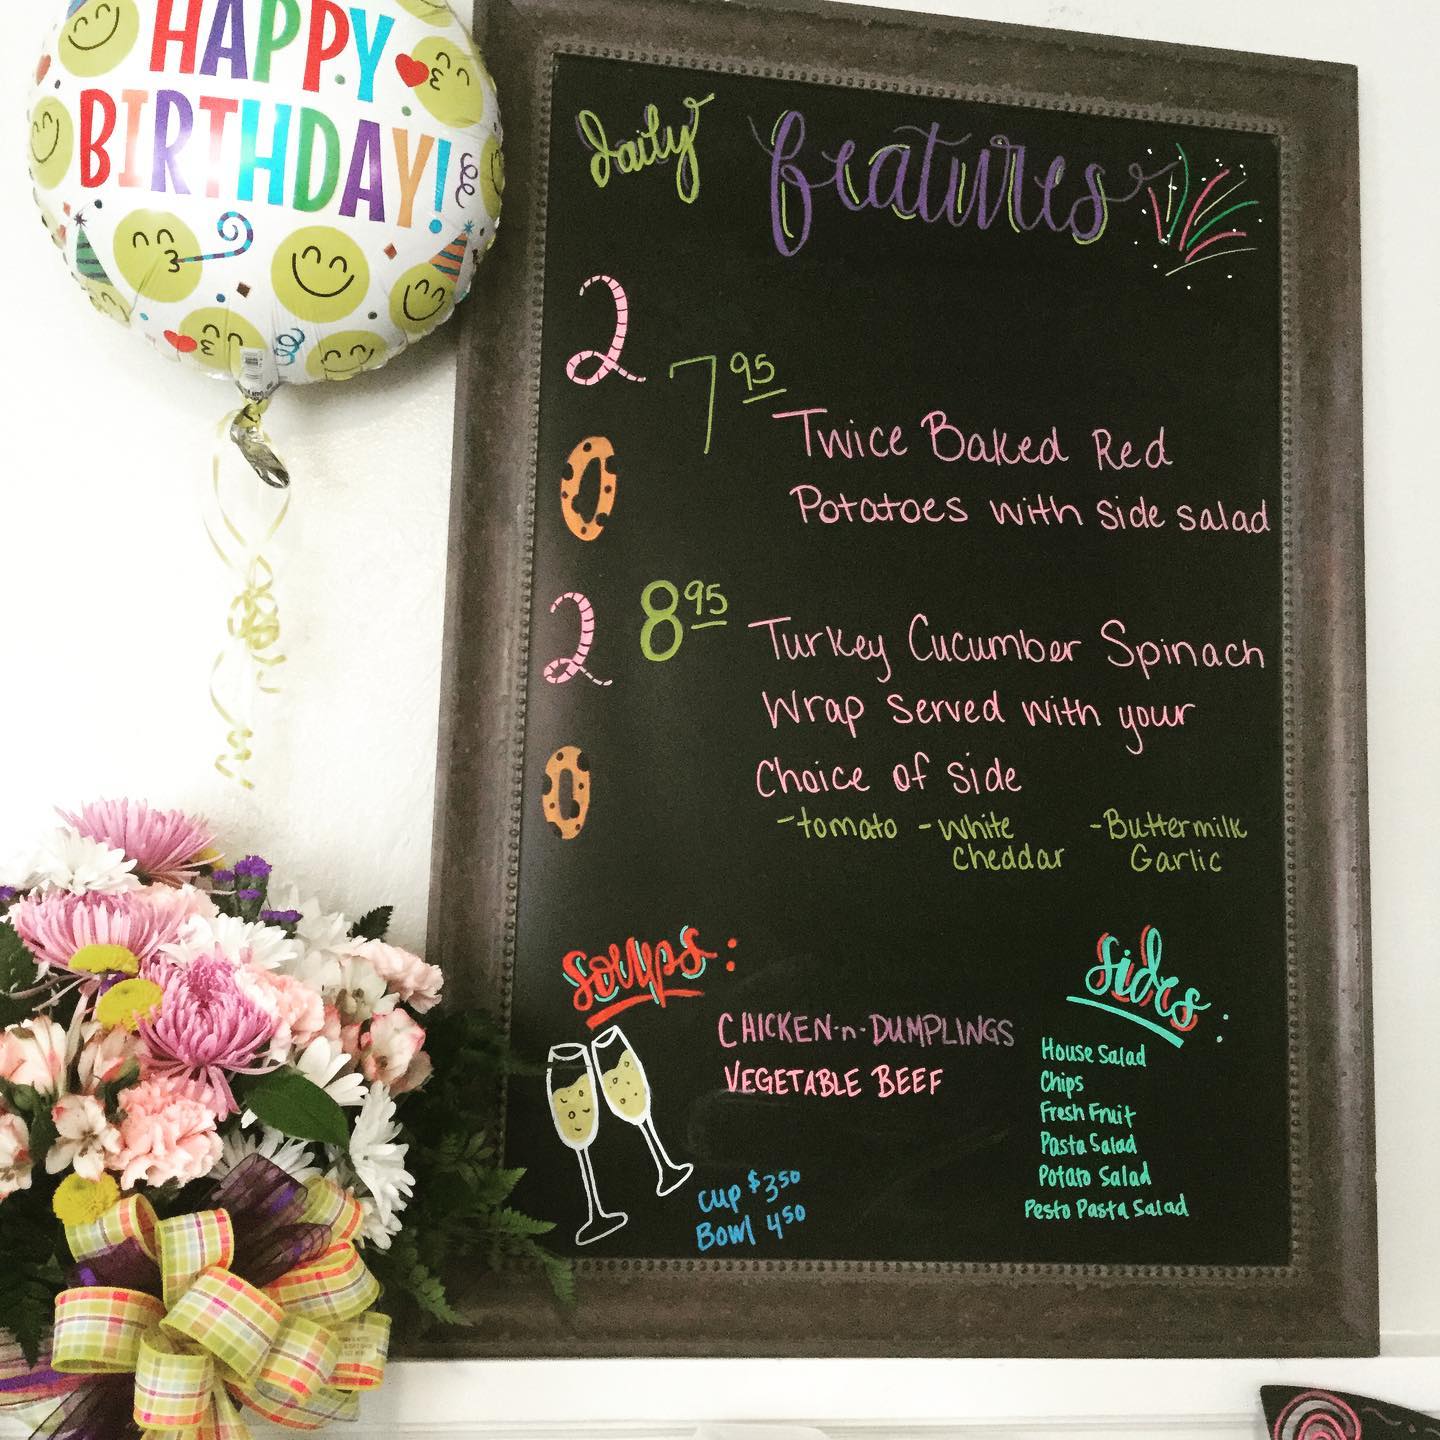 HAPPY
BIRTHDAY!
daily features
2
0
2
0
7 95
Twice Baked Red
Potatoes with side salad
8 95
Turkey Cucumber Spinach
Wrap Served with your
Choice of Side
-tomato -white cheddar -Buttermilk Garlic
soups:
CHICKEN-n-DUMPLINGS
VEGETABLE BEEF
cup $3 50
Bowl 4 50
sides:
House Salad
Chips
Fresh Fruit
Pasta Salad
Potato Salad
Pesto Pasta Salad